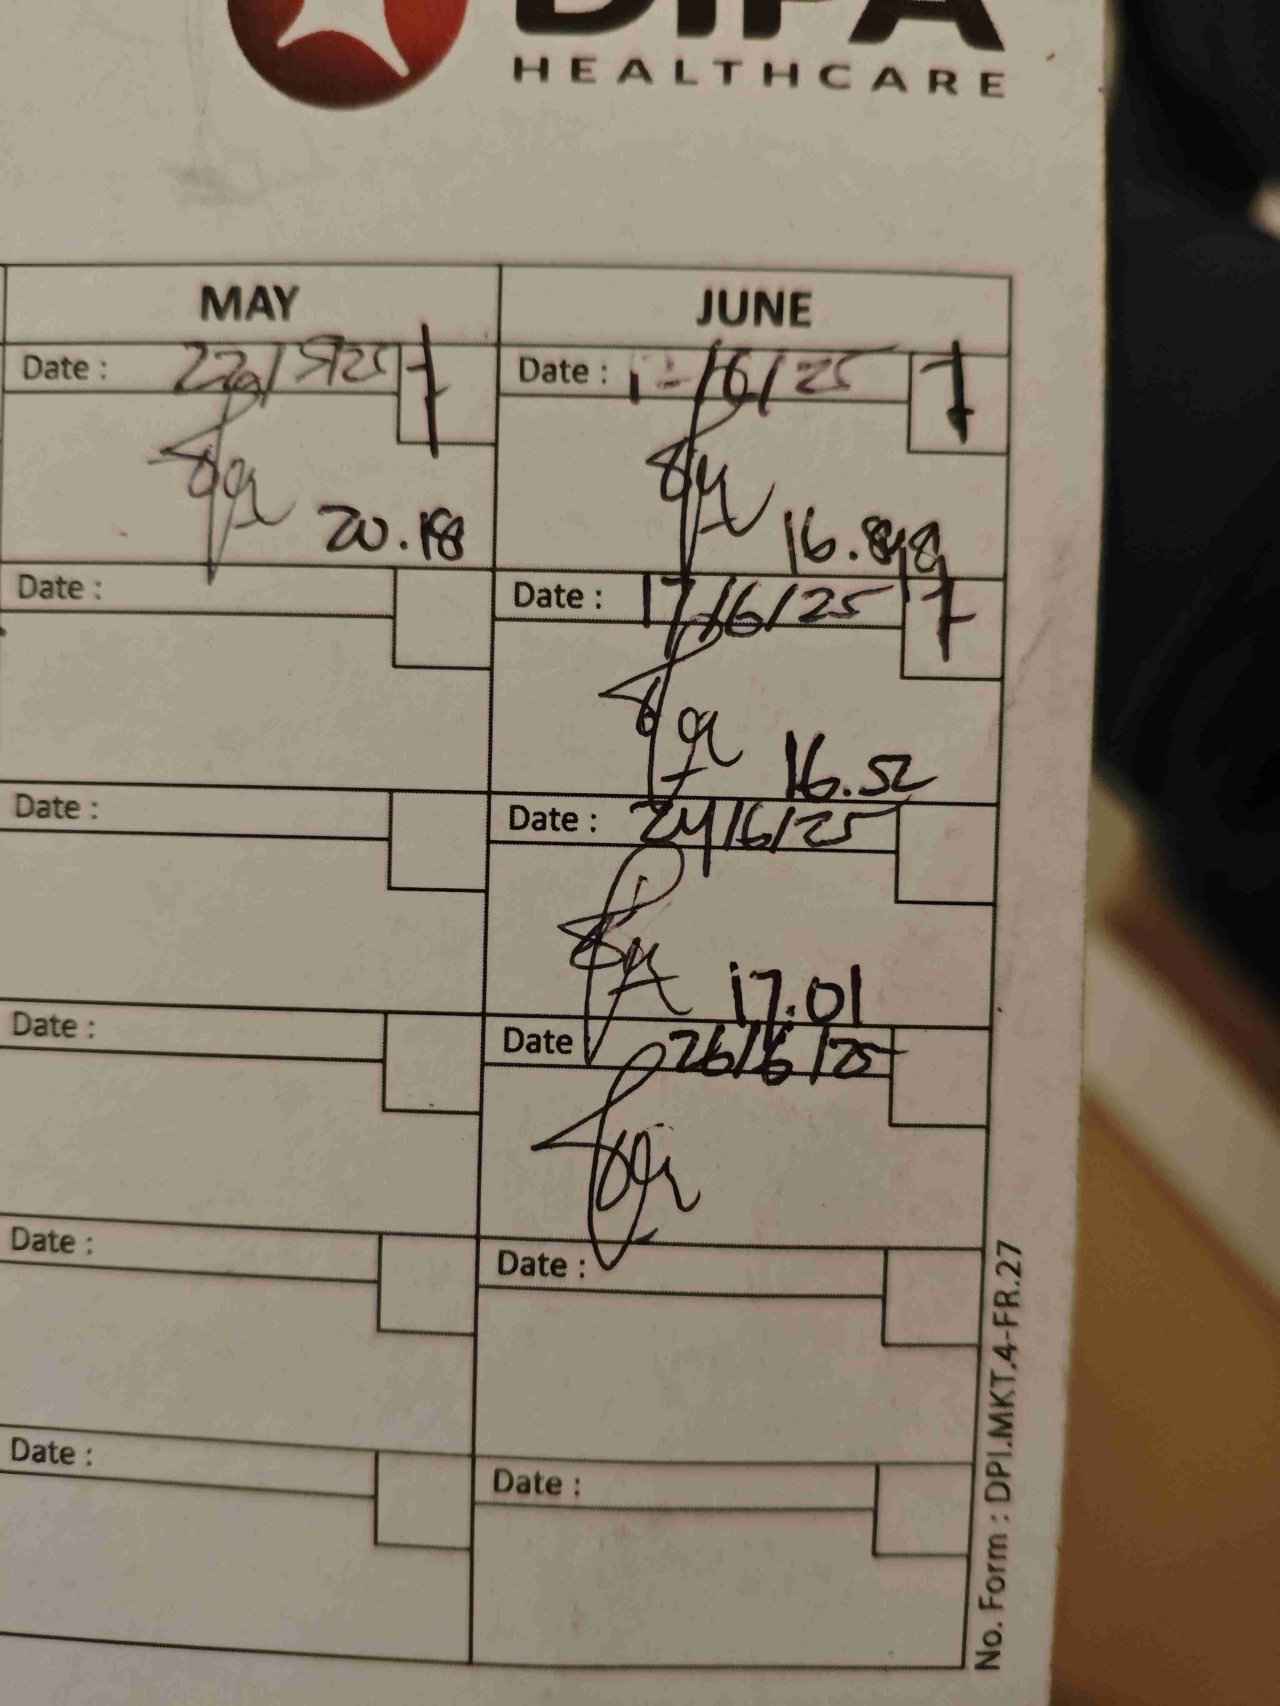 DIPA
HEALTHCARE
MAY
JUNE
Date : 22/5/25
20.18
Date :
Date :
Date :
Date :
Date :
Date : /6/25
16.
Date : 17/6/25
16.52
Date : 24/6/25
17.01
Date 26/6/25
Date :
Date :
No. Form : DPI.MKT.4-FR.27